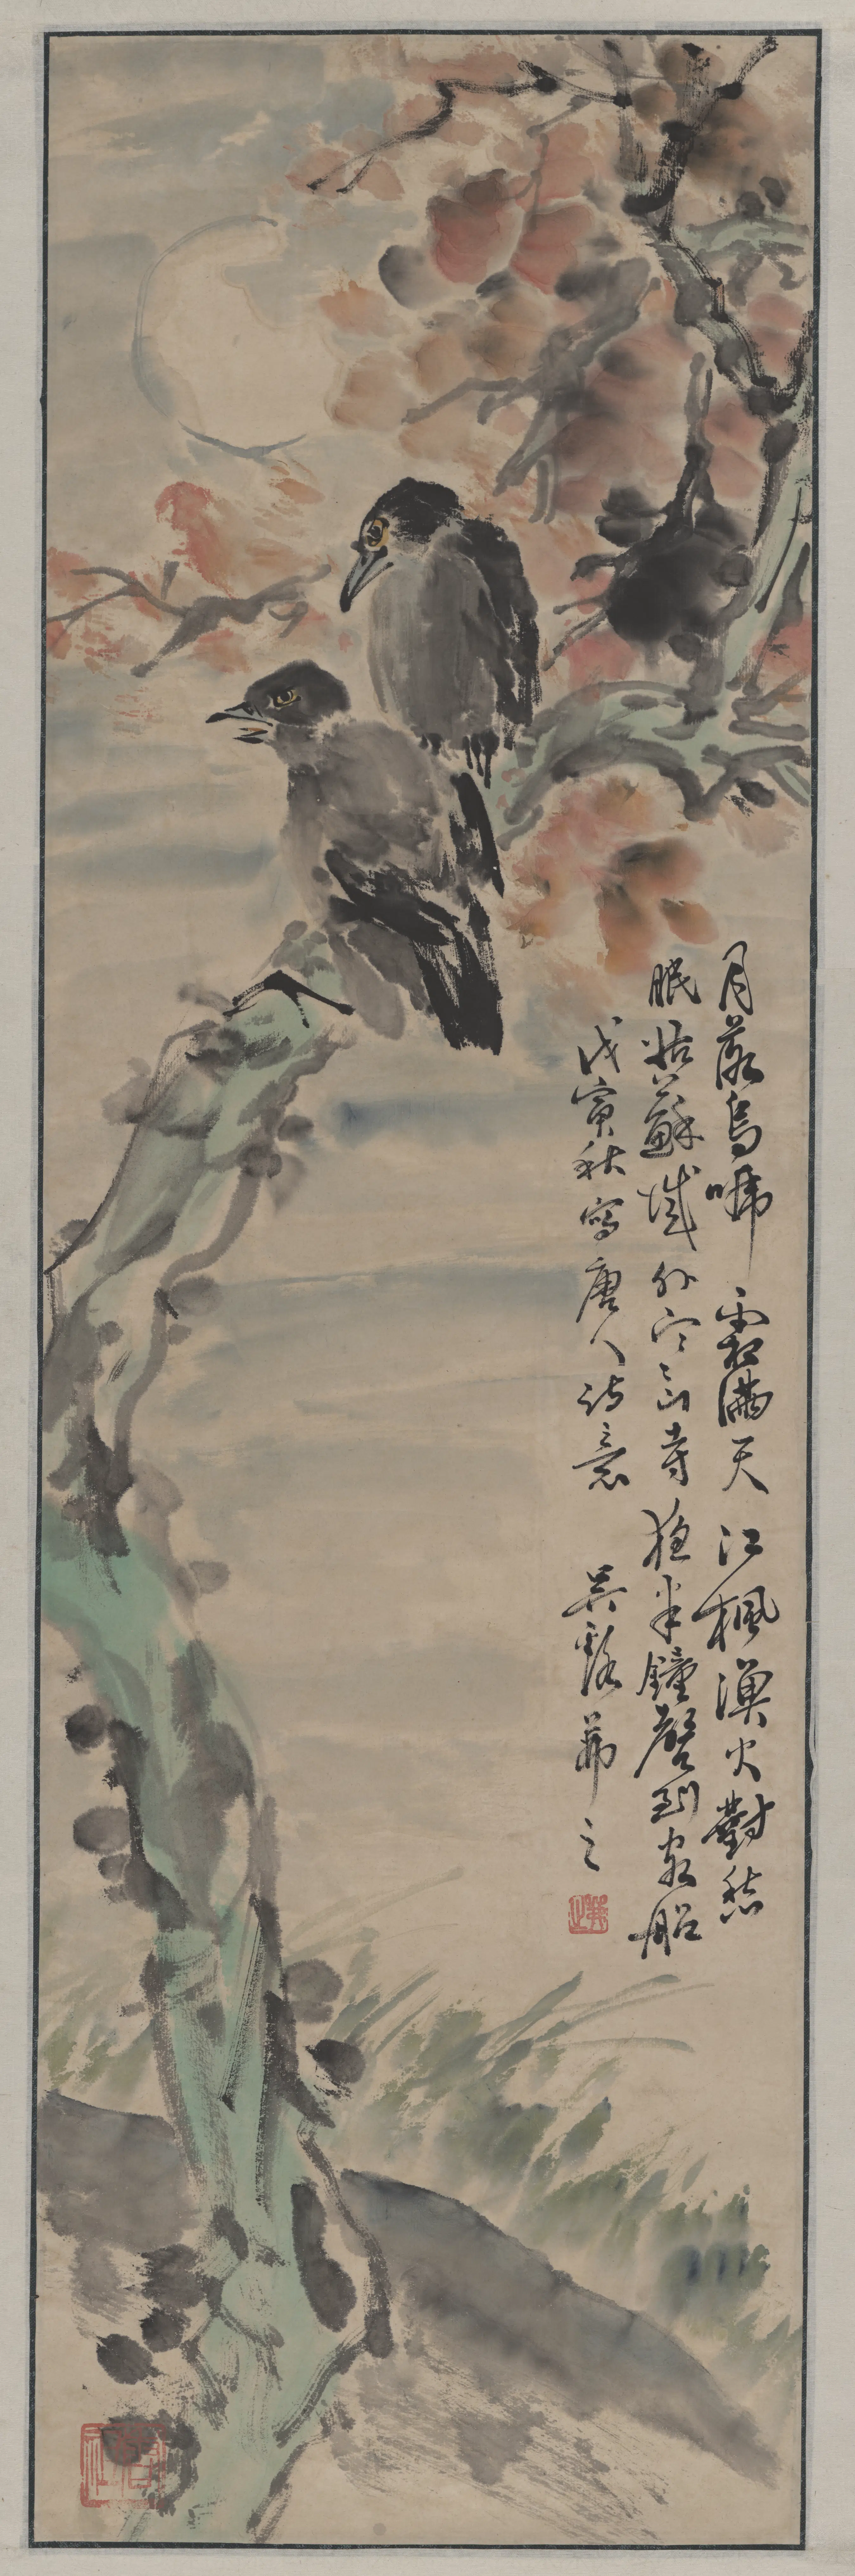 月落烏啼霜滿天江楓漁火對愁
眠姑蘇城外寒山寺夜半鐘聲到客船
戊寅秋寫唐人詩意 吳茀之